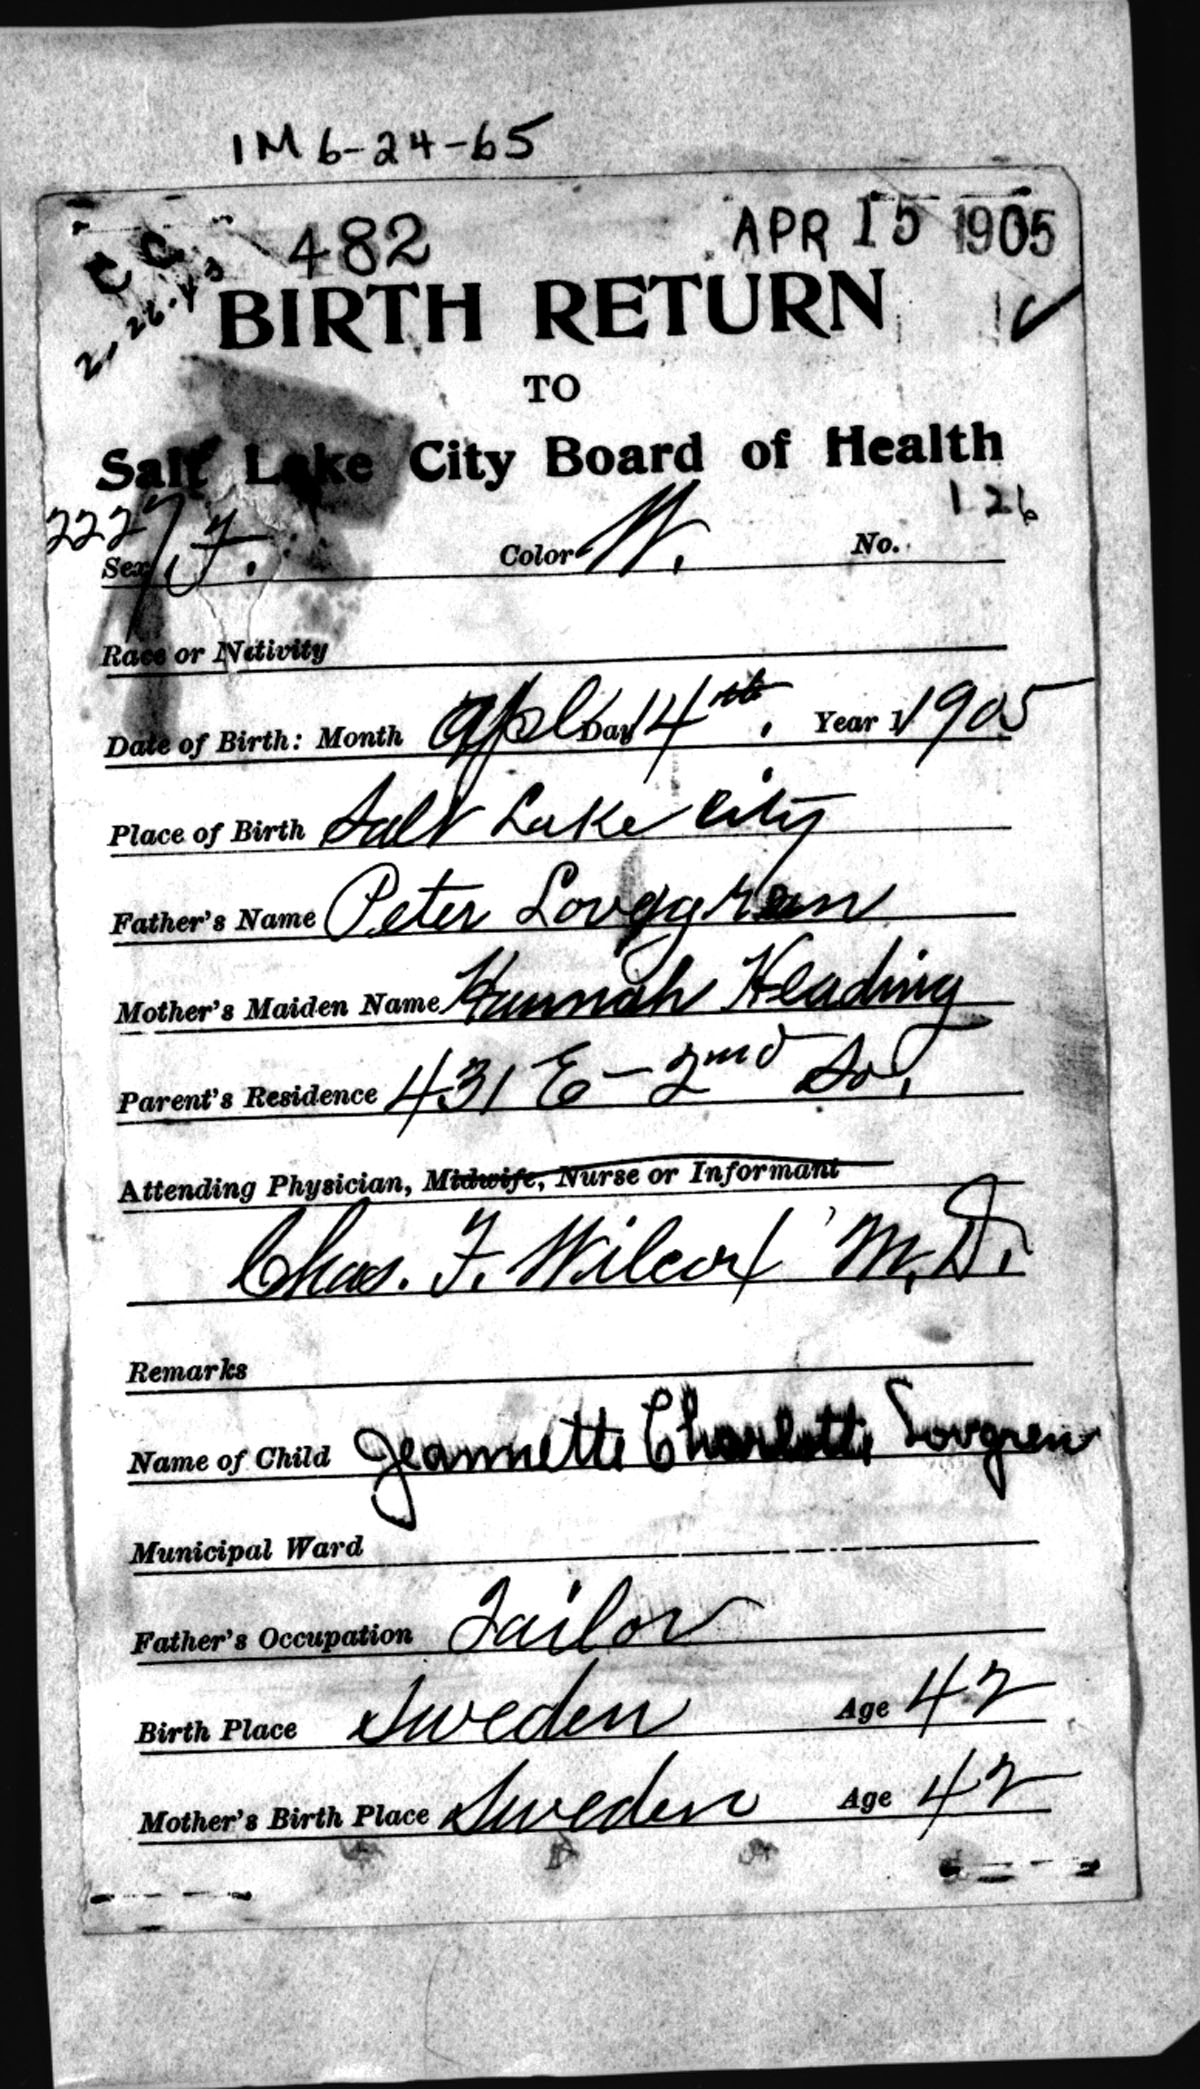 1M 6-24-65
482 APR 15 1905
C C
BIRTH RETURN
TO
Salt Lake City Board of Health
2227 126
Sex F. Color W. No.
Race or Nativity
Date of Birth: Month Apl Day 14th. Year 1 1905
Place of Birth Salt Lake City
Father's Name Peter Lovggren
Mother's Maiden Name Hannah Heading
Parent's Residence 431 E - 2nd So.
Attending Physician, Midwife, Nurse or Informant
Chas. F. Wilcox M.D.
Remarks
Name of Child Jeannette Charlotte Lovgren
Municipal Ward
Father's Occupation Tailor
Birth Place Sweden Age 42
Mother's Birth Place Sweden Age 42